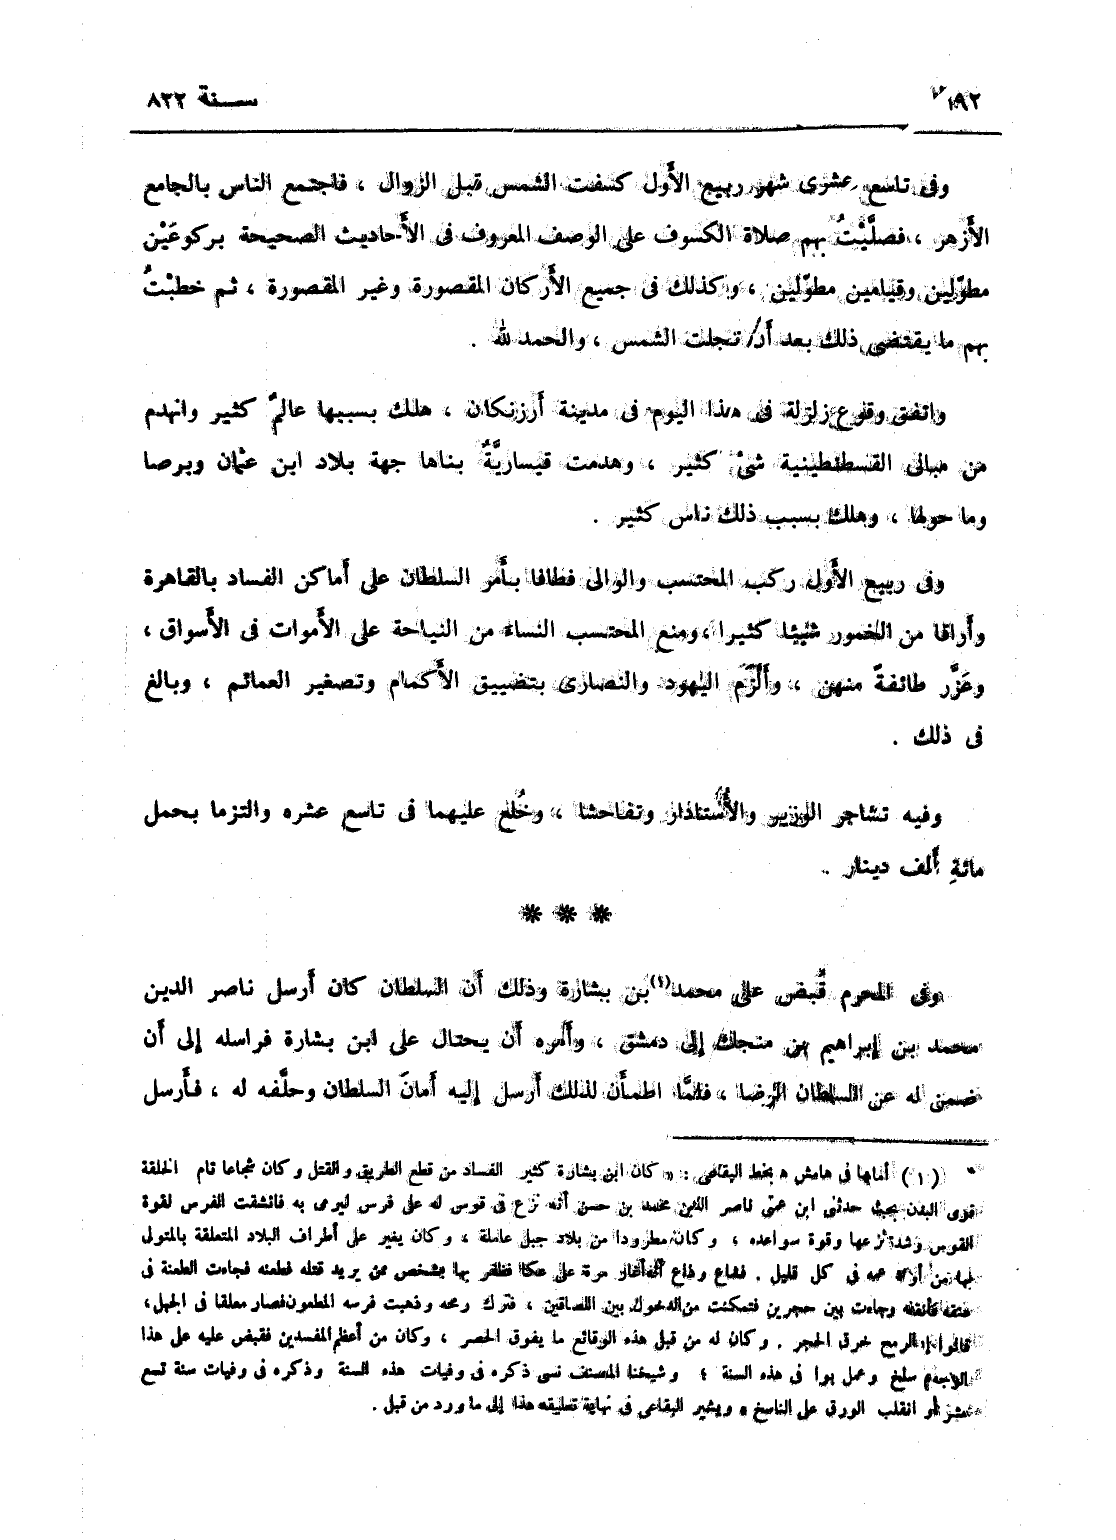 ١٩٢ سنة ٨٢٢
وفى تاسع عشرى شهر ربيع الأول كسفت الشمس قبل الزوال ، فاجتمع الناس بالجامع
الأزهر ، فصلَّيْتُ بهم صلاة الكسوف على الوصف المعروف فى الأحاديث الصحيحة بركوعَيْن
مطوّلين وقيامين مطوّلين ، وكذلك فى جميع الأركان المقصورة وغير المقصورة ، ثم خطبْتُ
بهم ما يقتضى ذلك بعد أن تجلت الشمس ، والحمد لله .
واتفق وقوع زلزلة فى هذا اليوم فى مدينة أرزنكان ، هلك بسببها عالمٌ كثير وانهدم
من مبانى القسطنطينية شئ كثير ، وهدمت قيساريَّةٌ بناها جهة بلاد ابن عثمان وبرصا
وما حولها ، وهلك بسبب ذلك ناس كثير .
وفى ربيع الأول ركب المحتسب والوالى فطافا بأمر السلطان على أماكن الفساد بالقاهرة
وأراقا من الخمور شيئا كثيرا ، ومنع المحتسب النساء من النياحة على الأموات فى الأسواق ،
وعَزَّر طائفةً منهن ، وأَلْزَم اليهود والنصارى بتضييق الأكمام وتصغير العمائم ، وبالغ
فى ذلك .
وفيه تشاجر الوزير والأُستادار وتفاحشا ، وخُلع عليهما فى تاسع عشره والتزما بحمل
مائةِ ألف دينار .
* * *
وفى المحرم قُبض على محمد(١) بن بشارة وذلك أن السلطان كان أرسل ناصر الدين
محمد بن إبراهيم بن منجك إلى دمشق ، وأمره أن يحتال على ابن بشارة فراسله إلى أن
ضمن له عن السلطان الرضا ، فلمَّا اطمأن لذلك أرسل إليه أمانَ السلطان وحلَّفه له ، فأرسل
(١) أمامها فى هامش ه بخط البقاعى : « كان ابن بشارة كثير الفساد من قطع الطريق والقتل وكان شجاعا تام الخلقة
قوى البدن بحيث حدثنى ابن عمى ناصر الدين محمد بن حسن أنه نزع فى قوس له على فرس ليرمى به فانشقت الفرس لقوة
القوس وشدة نزعها وقوة سواعده ، وكان مطرودا من بلاد جبل عاملة ، وكان يغير على أطراف البلاد المتعلقة بالمتولى
لها من أولاد عمه فى كل قليل . فشاع وذاع أنه أغار مرة على عكا فظفر بها بشخص ممن يريد قتله فطعنه فجاءت الطعنة فى
عنقه وجاءت بين حجرين فتمكنت من الدخول بين اللصاقين ، فترك رمحه وذهبت فرسه المطعون فصار معلقا فى الجبل،
قالوا إن الرمح خرق الحجر . وكان له من قبل هذه الوقائع ما يفوق الحصر ، وكان من أعظم المفسدين فقبض عليه على هذا
سلخ وعمل بوا فى هذه السنة ؛ وشيخنا المصنف نسى ذكره فى وفيات هذه السنة وذكره فى وفيات سنة تسع
عشر أو انقلب الورق على الناسخ » ويشير البقاعى فى نهاية تعليقه هذا إلى ما ورد من قبل .